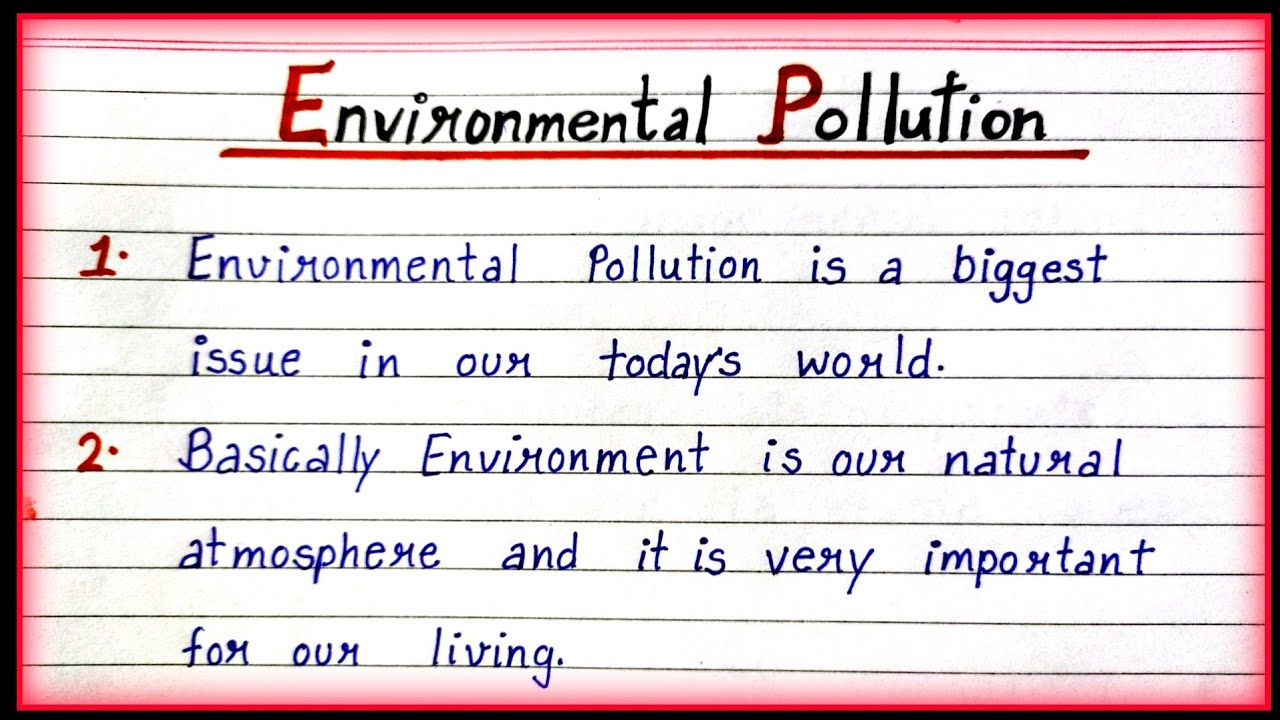 Environmental Pollution
1. Environmental Pollution is a biggest
issue in our today's world.
2. Basically Environment is our natural
atmosphere and it is very important
for our living.